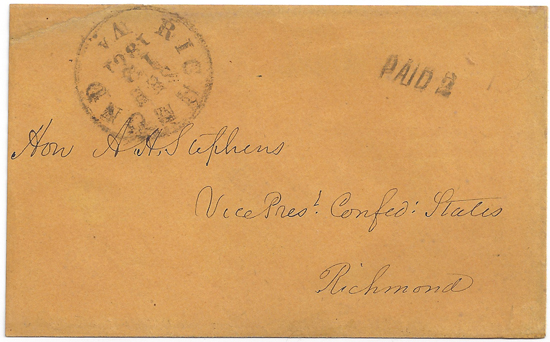 RICHMOND VA
PAID 2
Hon A. H. Stephens
Vice Prest. Confed: States
Richmond